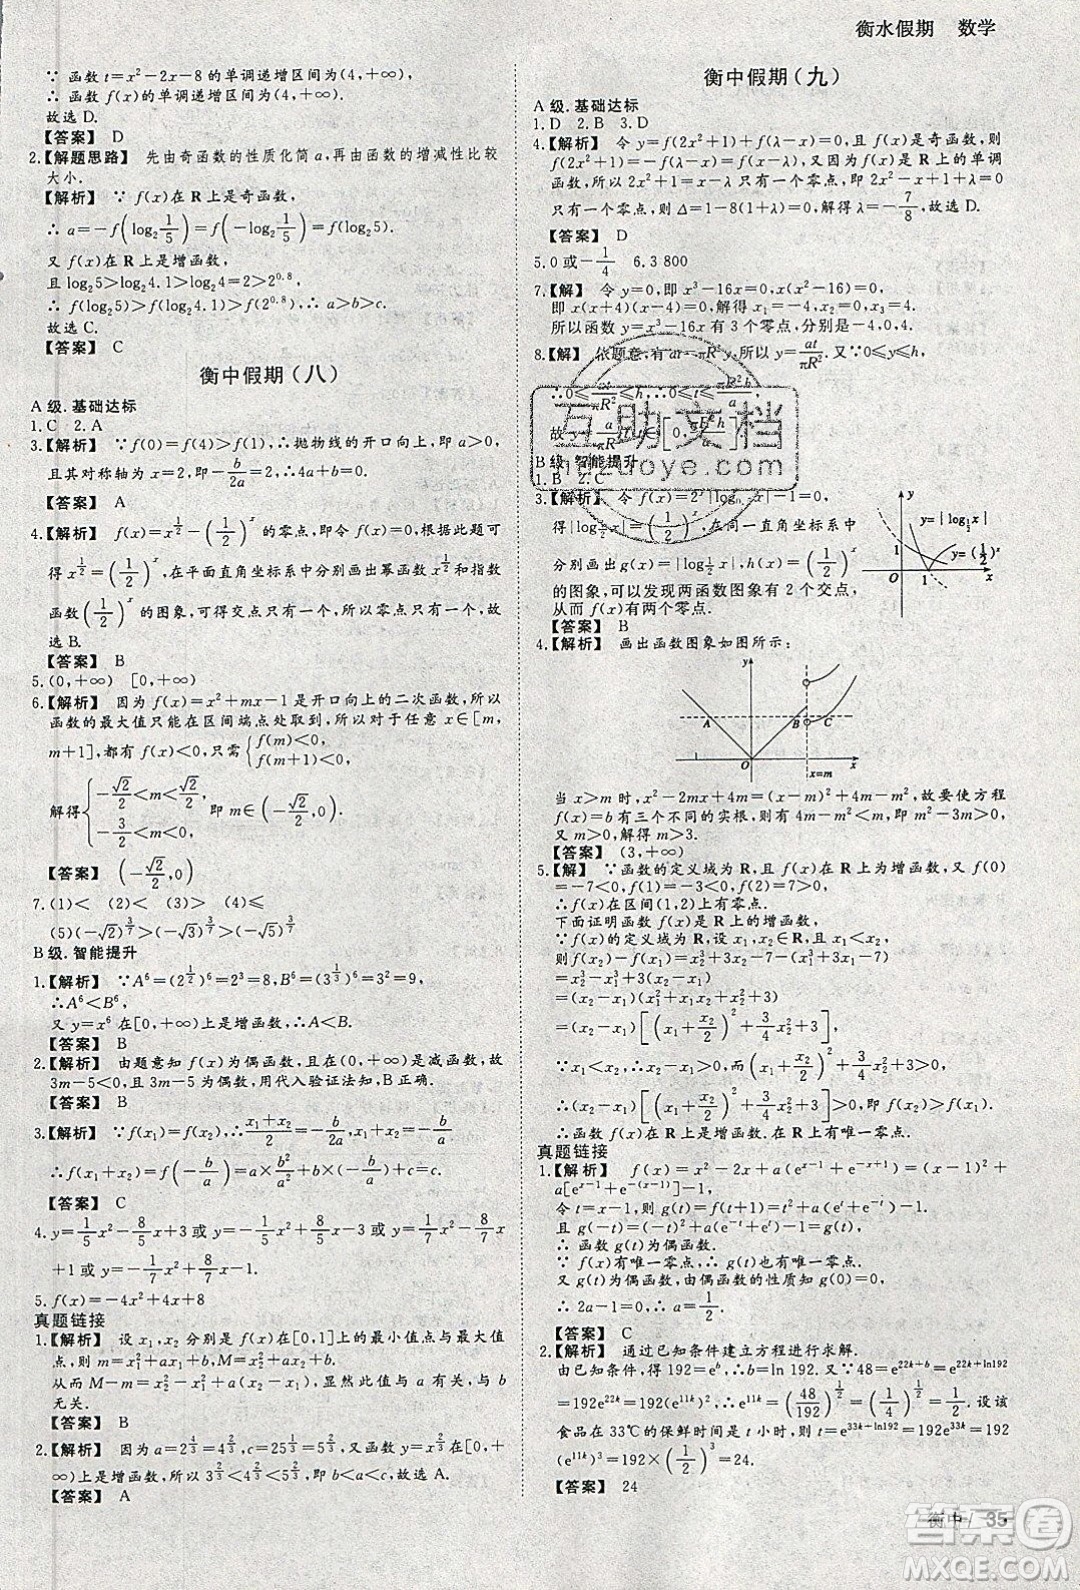 衡水假期 数学
∴ 函数 t=x²−2x−8 的单调递增区间为(4,+∞).
∴ 函数 f(x)的单调递增区间为(4,+∞).
故选 D.
【答案】 D
2.【解题思路】 先由奇函数的性质化简 a,再由函数的增减性比较
大小.
【解析】 ∵ f(x)在 R 上是奇函数,
∴ a=−f(log₂ 1/5)=f(−log₂ 1/5)=f(log₂5).
又 f(x)在 R 上是增函数,
且 log₂5>log₂4.1>log₂4=2>2^0.8,
∴ f(log₂5)>f(log₂4.1)>f(2^0.8),∴a>b>c.
故选 C.
【答案】 C
衡中假期(八)
A 级.基础达标
1.C 2.A
3.【解析】 ∵f(0)=f(4)>f(1),∴抛物线的开口向上,即 a>0,
且其对称轴为 x=2,即−b/2a=2,∴4a+b=0.
【答案】 A
4.【解析】 f(x)=x^(1/2)−(1/2)^x 的零点,即令 f(x)=0,根据此题可
得 x^(1/2)=(1/2)^x,在平面直角坐标系中分别画出幂函数 x^(1/2) 和指数
函数(1/2)^x 的图象,可得交点只有一个,所以零点只有一个,故
选 B.
【答案】 B
5.(0,+∞) [0,+∞)
6.【解析】 因为 f(x)=x²+mx−1 是开口向上的二次函数,所以
函数的最大值只能在区间端点处取到,所以对于任意 x∈[m,
m+1],都有 f(x)<0,只需 { f(m)<0, f(m+1)<0,
解得 { −√2/2<m<√2/2, −3/2<m<0, 即 m∈(−√2/2,0).
【答案】 (−√2/2,0)
7.(1)< (2)< (3)> (4)≤
(5)(−√2)^(3/7)>(−√3)^(3/7)>(−√5)^(3/7)
B 级.智能提升
1.【解析】 ∵A⁶=(2^(1/2))⁶=2³=8,B⁶=(3^(1/3))⁶=3²=9,
∴A⁶<B⁶.
又 y=x⁶ 在[0,+∞)上是增函数,∴A<B.
【答案】 B
2.【解析】 由题意知 f(x)为偶函数,且在(0,+∞)是减函数,故
3m−5<0,且 3m−5 为偶数,用代入验证法知,B正确.
【答案】 B
3.【解析】 ∵f(x₁)=f(x₂),∴(x₁+x₂)/2=−b/2a,x₁+x₂=−b/a,
∴f(x₁+x₂)=f(−b/a)=a×b²/a²−b×b/a+c=c.
【答案】 C
4.y=1/5x²−8/5x+3 或 y=−1/5x²+8/5x−3 或 y=1/7x²−8/7x
+1 或 y=−1/7x²+8/7x−1.
5.f(x)=−4x²+4x+8
真题链接
1.【解析】 设 x₁,x₂ 分别是 f(x)在[0,1]上的最小值点与最大值
点,则 m=x₁²+ax₁+b,M=x₂²+ax₂+b.
从而 M−m=x₂²−x₁²+a(x₂−x₁),显然此值与 a 有关,与 b
无关.
【答案】 B
2.【解析】 因为 a=2^(4/3)=4^(2/3),c=25^(1/3)=5^(2/3),又函数 y=x^(2/3) 在[0,
+∞)上是增函数,所以 3^(2/3)<4^(2/3)<5^(2/3),即 b<a<c,故选 A.
【答案】 A
衡中假期(九)
A 级.基础达标
1.D 2.B 3.D
4.【解析】 令 y=f(2x²+1)+f(λ−x)=0,且 f(x)是奇函数,则
f(2x²+1)=−f(λ−x)=f(x−λ),又因为 f(x)是 R 上的单调
函数,所以 2x²+1=x−λ 只有一个根,即 2x²−x+1+λ=0
只有一个零点,则 Δ=1−8(1+λ)=0,解得 λ=−7/8,故选 D.
【答案】 D
5.0 或−1/4 6.3 800
7.【解】 令 y=0,即 x³−16x=0,x(x²−16)=0,
即 x(x+4)(x−4)=0,解得 x₁=−4,x₂=0,x₃=4.
所以函数 y=x³−16x 有 3 个零点,分别是−4,0,4.
8.【解】 依题意,有 at=πR²y,所以 y=at/πR².又∵0≤y≤h,
∴0≤at/πR²≤h,∴0≤t≤πR²h/a.
故 y=a/πR² t,t∈[0,πR²h/a].
B 级.智能提升
1.B 2.C
3.【解析】 令 f(x)=2^x|log x|−1=0,
得|log½x|=(1/2)^x,在同一直角坐标系中
分别画出 g(x)=|log½x|,h(x)=(1/2)^x
的图象,可以发现两函数图象有 2 个交点,
从而 f(x)有两个零点.
【答案】 B
y y=|log½x| 1 y=(½)^x O 1 x
4.【解析】 画出函数图象如图所示:
y A B C O x=m x
当 x>m 时,x²−2mx+4m=(x−m)²+4m−m²,故要使方程
f(x)=b 有三个不同的实根,则有 4m−m²<m,即 m²−3m>0,
又 m>0,解得 m>3.
【答案】 (3,+∞)
5.【解】 ∵函数的定义域为 R,且 f(x)在 R 上为增函数,又 f(0)
=−7<0,f(1)=−3<0,f(2)=7>0,
∴f(x)在区间(1,2)上有零点.
下面证明函数 f(x)是 R 上的增函数,
∵f(x)的定义域为 R,设 x₁,x₂∈R,且 x₁<x₂,
则f(x₂)−f(x₁)=x₂³+3x₂−7−(x₁³+3x₁−7)
=x₂³−x₁³+3(x₂−x₁)
=(x₂−x₁)(x₁²+x₁x₂+x₂²)+3(x₂−x₁)
=(x₂−x₁)[(x₁+x₂/2)²+3/4x₂²+3],
∵x₁<x₂,∴x₂−x₁>0,又(x₁+x₂/2)²+3/4x₂²+3>0,
∴(x₂−x₁)[(x₁+x₂/2)²+3/4x₂²+3]>0,即 f(x₂)>f(x₁).
∴函数 f(x)在 R 上为增函数,∴函数在 R 上有唯一零点.
真题链接
1.【解析】 f(x)=x²−2x+a(e^(x−1)+e^(−x+1))=(x−1)²+
a[e^(x−1)+e^(−(x−1))]−1,
令 t=x−1,则 g(t)=f(t+1)=t²+a(e^t+e^(−t))−1.
且 g(−t)=(−t)²+a(e^(−t)+e^t)−1=g(t),
∴ 函数 g(t)为偶函数.
∵ f(x)有唯一零点,∴ g(t)也有唯一零点.
又 g(t)为偶函数,由偶函数的性质知 g(0)=0,
∴ 2a−1=0,∴ a=1/2.
【答案】 C
2.【解析】 通过已知条件建立方程进行求解.
由已知条件,得 192=e^b,∴b=ln 192.又∵48=e^(22k+b)=e^(22k+ln192)
=192e^(22k)=192(e^(11k))²,∴e^(11k)=(48/192)^(1/2)=(1/4)^(1/2)=1/2.设该
食品在 33℃的保鲜时间是 t 小时,则 t=e^(33k+ln192)=192e^(33k)=192
(e^(11k))³=192×(1/2)³=24.
【答案】 24
衡中 35
互助文档
huzuoye.com
答案圈
MXQE.COM